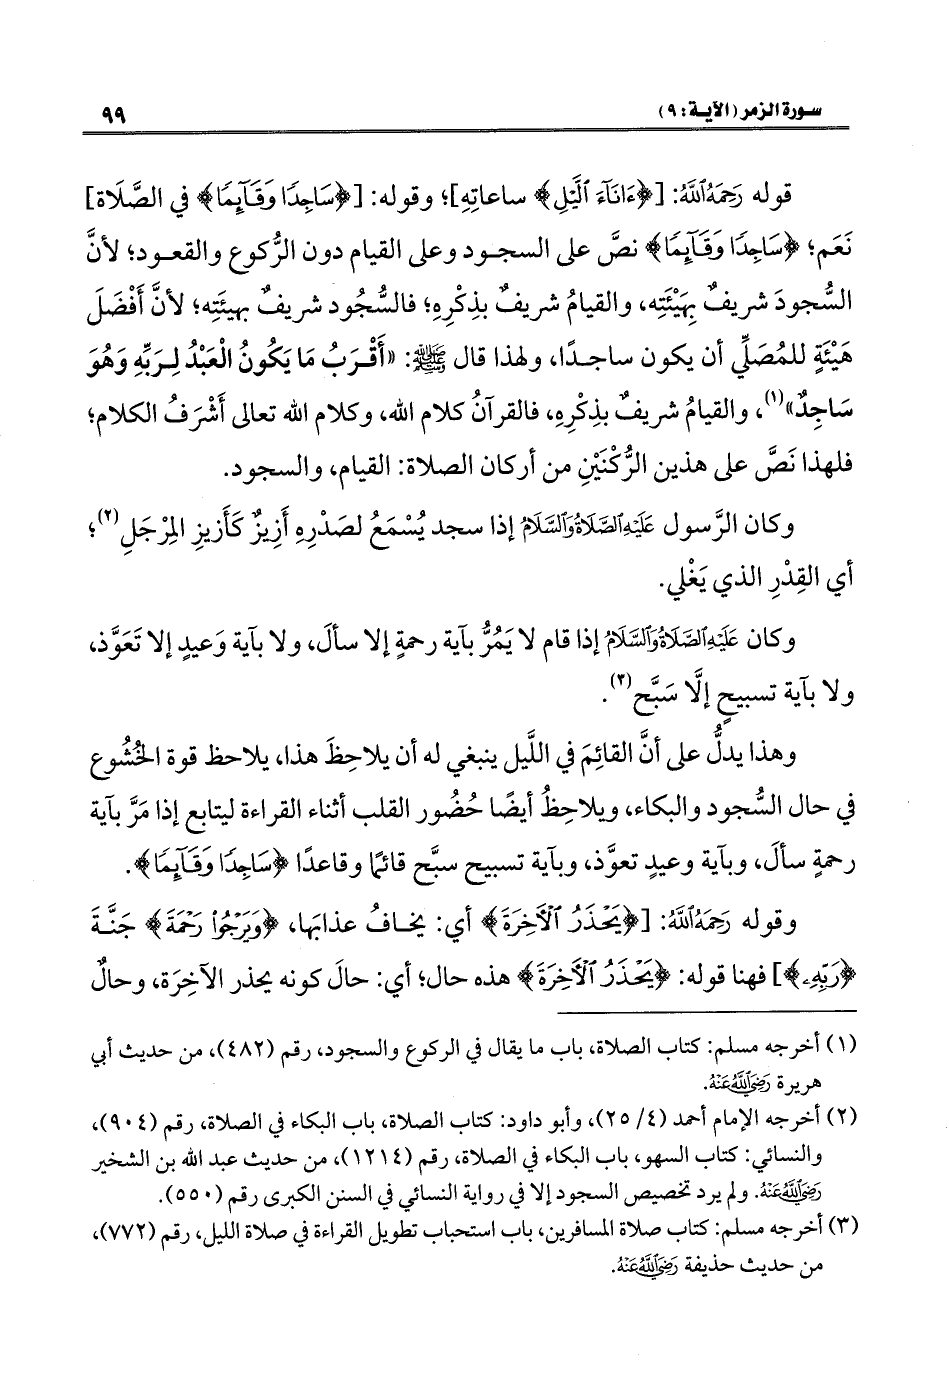 سورة الزمر (الآية: ٩)
٩٩
قوله رَحِمَهُ ٱللَّهُ: [﴿ءَانَآءَ ٱلَّيْلِ﴾ ساعاتِهِ]؛ وقوله: [﴿سَاجِدًا وَقَآئِمًا﴾ في الصَّلَاة]
نَعَم؛ ﴿سَاجِدًا وَقَآئِمًا﴾ نصَّ على السجود وعلى القيام دون الرُّكوع والقعود؛ لأنَّ
السُّجودَ شريفٌ بِهَيْئَتِه، والقيامُ شريفٌ بذِكْرِهِ؛ فالسُّجُود شريفٌ بهيئَتِه؛ لأنَّ أَفْضَلَ
هَيْئَةٍ للمُصَلِّي أن يكون ساجدًا، ولهذا قال ﷺ: «أَقْرَبُ مَا يَكُونُ الْعَبْدُ لِرَبِّهِ وَهُوَ
سَاجِدٌ»(١)، والقيامُ شريفٌ بذِكْرِهِ، فالقرآنُ كلام الله، وكلام الله تعالى أَشْرَفُ الكلام؛
فلهذا نَصَّ على هذين الرُّكْنَيْنِ من أركان الصلاة: القيام، والسجود.
وكان الرَّسول عَلَيْهِ ٱلصَّلَاةُ وَٱلسَّلَامُ إذا سجد يُسْمَعُ لصَدْرِهِ أَزِيزٌ كَأَزيزِ المِرْجَلِ(٢)؛
أي القِدْرِ الذي يَغْلي.
وكان عَلَيْهِ ٱلصَّلَاةُ وَٱلسَّلَامُ إذا قام لا يَمُرُّ بآية رحمةٍ إلا سألَ، ولا بآية وَعيدٍ إلا تَعَوَّذ،
ولا بآية تسبيحٍ إلَّا سَبَّح(٣).
وهذا يدلُّ على أنَّ القائِمَ في اللَّيل ينبغي له أن يلاحِظَ هذا، يلاحظ قوة الخُشُوع
في حال السُّجود والبكاء، ويلاحِظُ أيضًا حُضُور القلب أثناء القراءة ليتابع إذا مَرَّ بآية
رحمةٍ سألَ، وبآية وعيدٍ تعوَّذ، وبآية تسبيح سبَّح قائمًا وقاعدًا ﴿سَاجِدًا وَقَآئِمًا﴾.
وقوله رَحِمَهُ ٱللَّهُ: [﴿يَحْذَرُ ٱلْآخِرَةَ﴾ أي: يخافُ عذابَها، ﴿وَيَرْجُوا۟ رَحْمَةَ﴾ جَنَّةَ
﴿رَبِّهِۦ﴾] فهنا قوله: ﴿يَحْذَرُ ٱلْآخِرَةَ﴾ هذه حال؛ أي: حالَ كونه يحذر الآخِرَة، وحالٌ
(١) أخرجه مسلم: كتاب الصلاة، باب ما يقال في الركوع والسجود، رقم (٤٨٢)، من حديث أبي
هريرة رَضِيَ ٱللَّهُ عَنْهُ.
(٢) أخرجه الإمام أحمد (٤/ ٢٥)، وأبو داود: كتاب الصلاة، باب البكاء في الصلاة، رقم (٩٠٤)،
والنسائي: كتاب السهو، باب البكاء في الصلاة، رقم (١٢١٤)، من حديث عبد الله بن الشخير
رَضِيَ ٱللَّهُ عَنْهُ. ولم يرد تخصيص السجود إلا في رواية النسائي في السنن الكبرى رقم (٥٥٠).
(٣) أخرجه مسلم: كتاب صلاة المسافرين، باب استحباب تطويل القراءة في صلاة الليل، رقم (٧٧٢)،
من حديث حذيفة رَضِيَ ٱللَّهُ عَنْهُ.